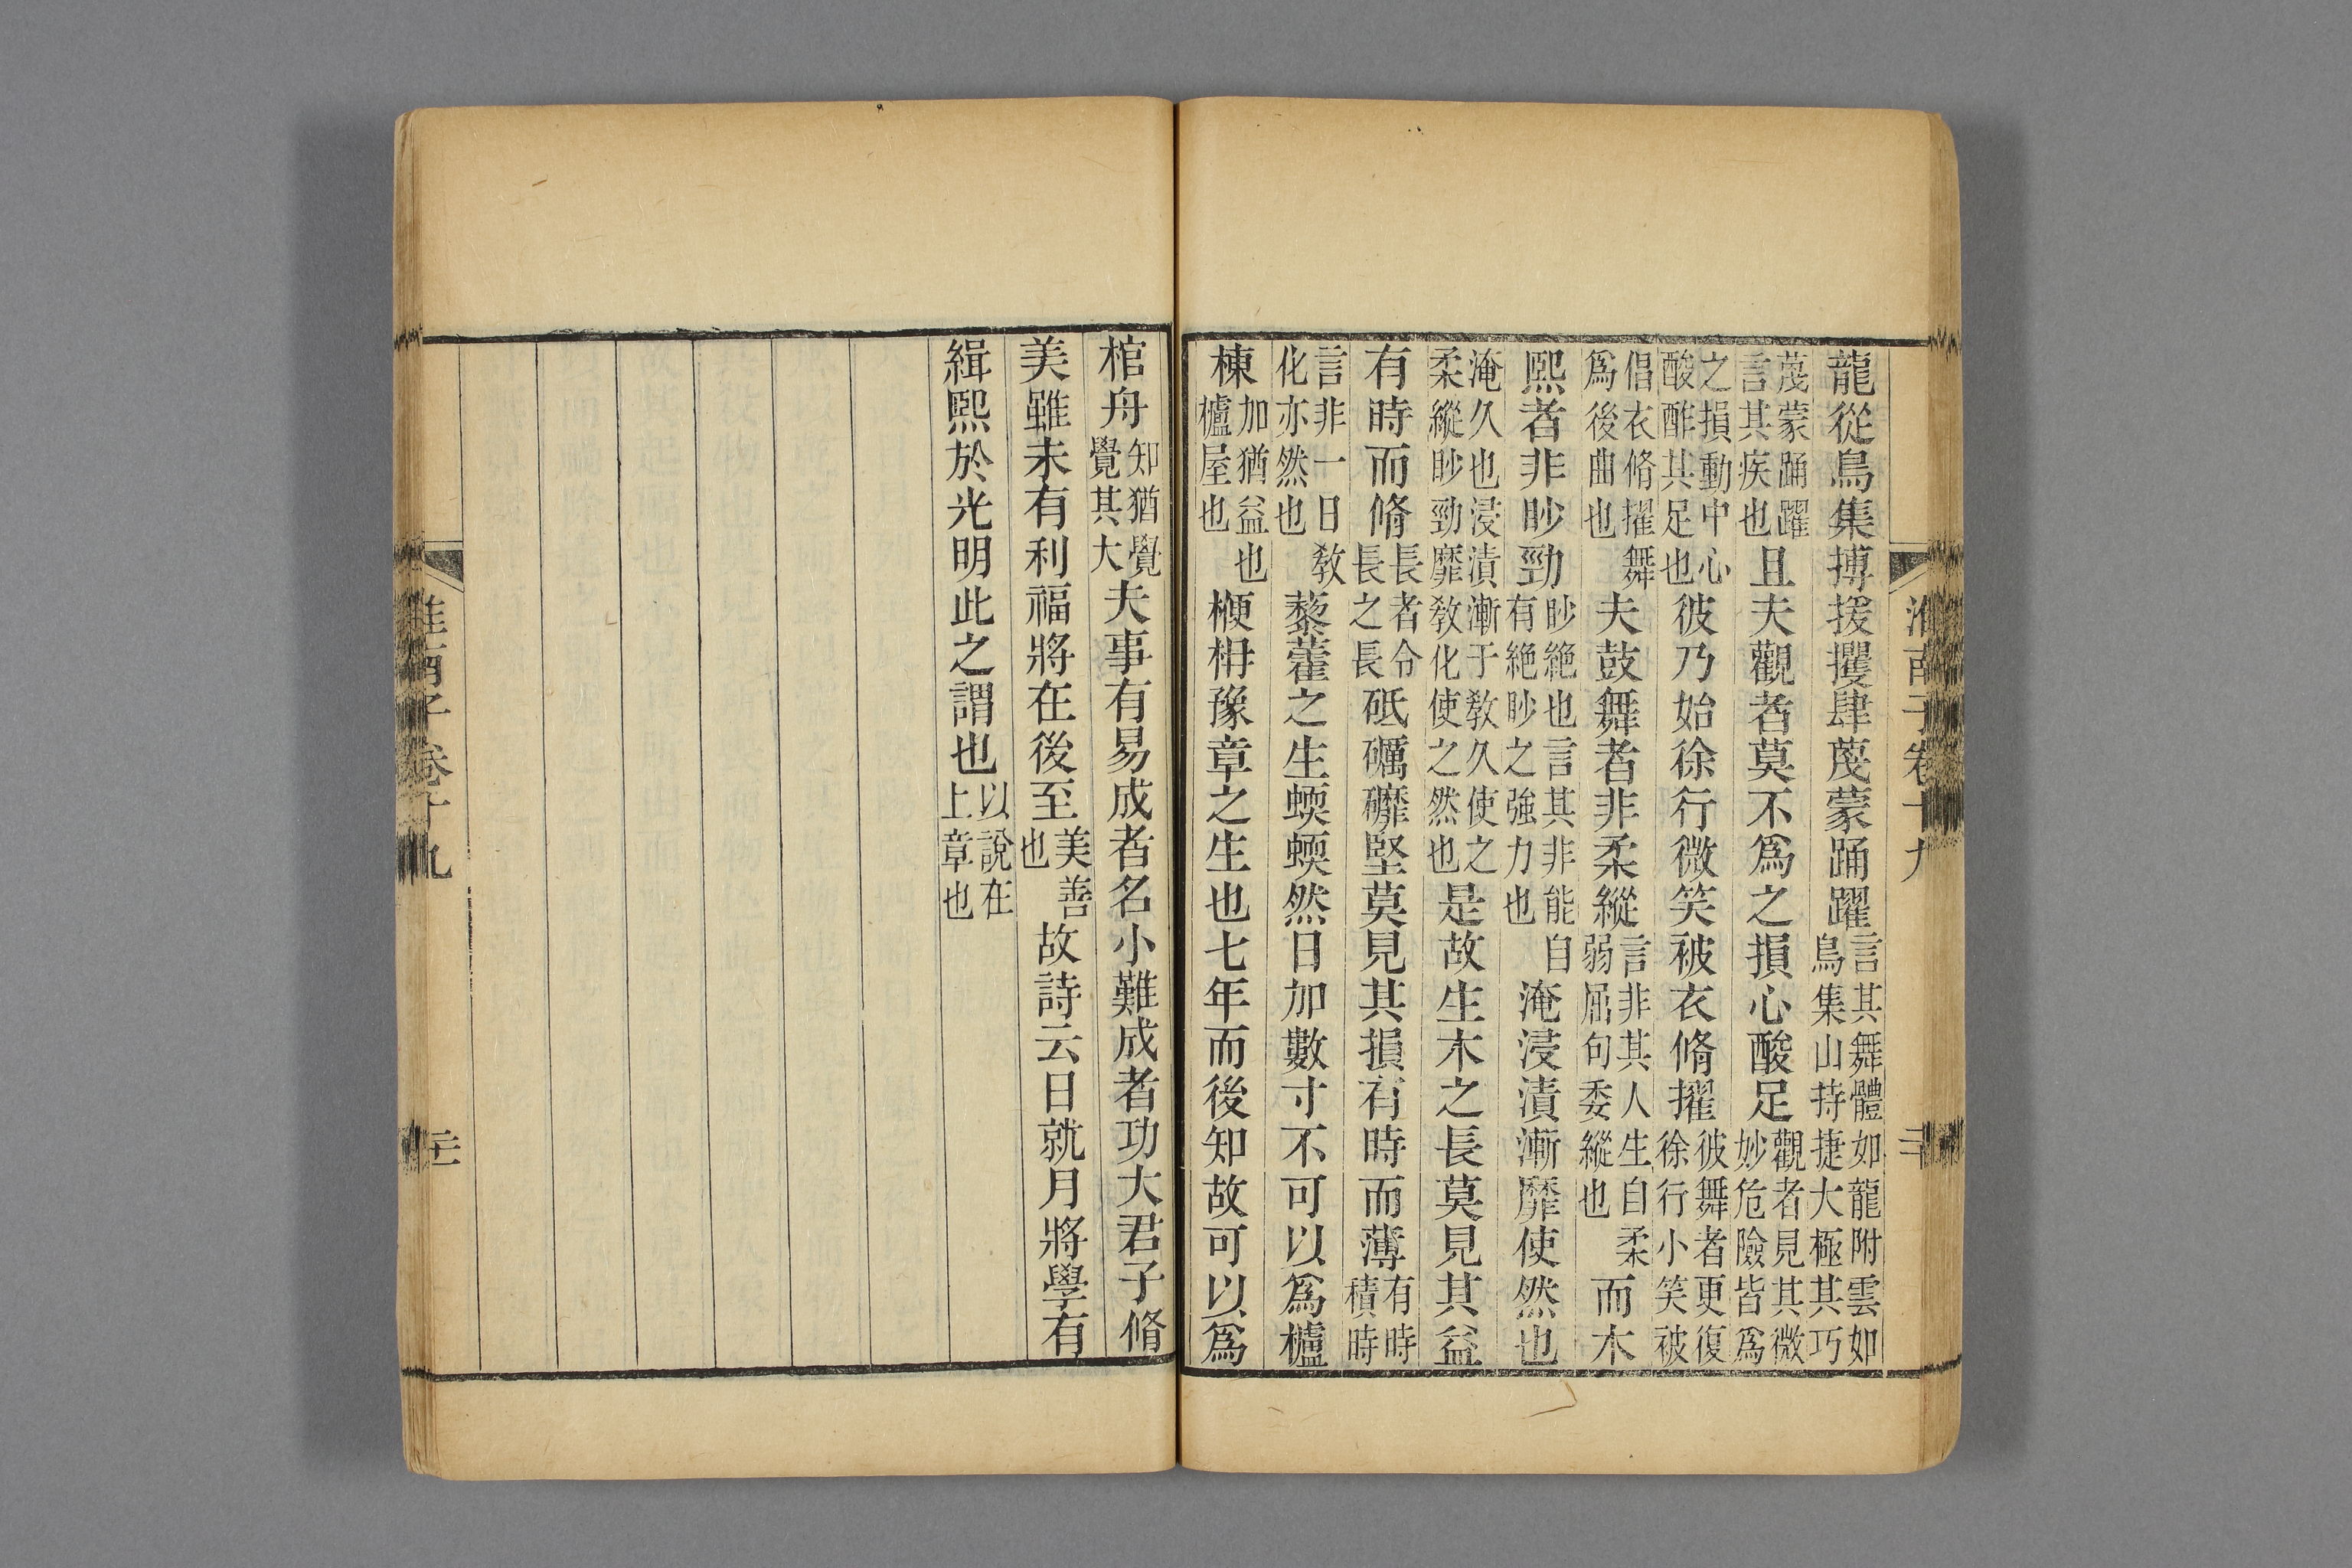 淮南子卷十九
龍從鳥集搏援攫肆蔑蒙踊躍言其舞體如龍附雲如鳥集山持捷大極其巧
蔑蒙踊躍言其疾也且夫觀者莫不爲之損心酸足觀者見其微妙危險皆爲
之損動中心酸酢其足也彼乃始徐行微笑被衣脩擢彼舞者更復徐行小笑被
倡衣脩擢舞爲後曲也夫鼓舞者非柔縱言非其人生自柔弱屈句委縱也而木
熙者非眇勁眇絶也言其非能自有絶眇之強力也淹浸漬漸靡使然也
淹久也浸漬漸于教久使之柔縱眇勁靡教化使之然也是故生木之長莫見其益
有時而脩長者令長之長砥礪磿堅莫見其損有時而薄有時積時
言非一日教化亦然也藜藿之生蝡蝡然日加數寸不可以爲櫨
棟加猶益也櫨屋也楩柟豫章之生也七年而後知故可以爲
棺舟知猶覺覺其大夫事有易成者名小難成者功大君子脩
美雖未有利福將在後至美善也故詩云日就月將學有
緝熙於光明此之謂也以說在上章也
淮南子卷十九